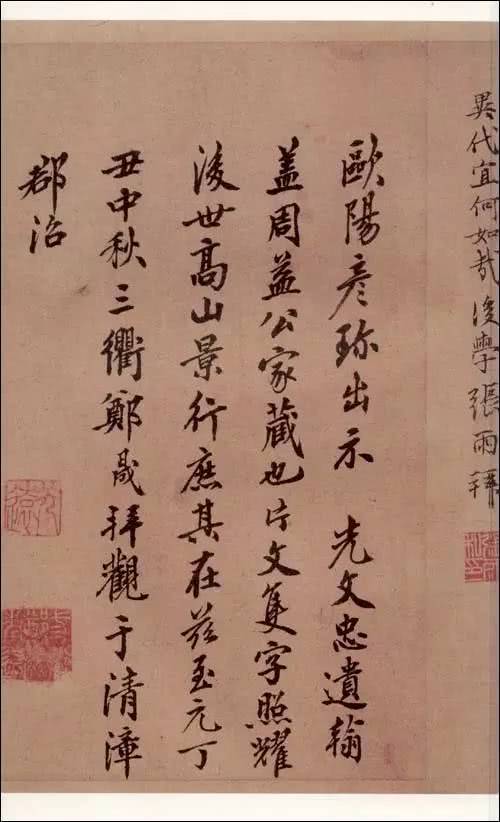 異代宜何如哉後學張雨拜
歐陽彥珎出示 先文忠遺翰
盖周益公家藏也片文隻字照耀
後世高山景行庶其在兹至元丁
丑中秋三衢鄭晟拜觀于清漳
郡治